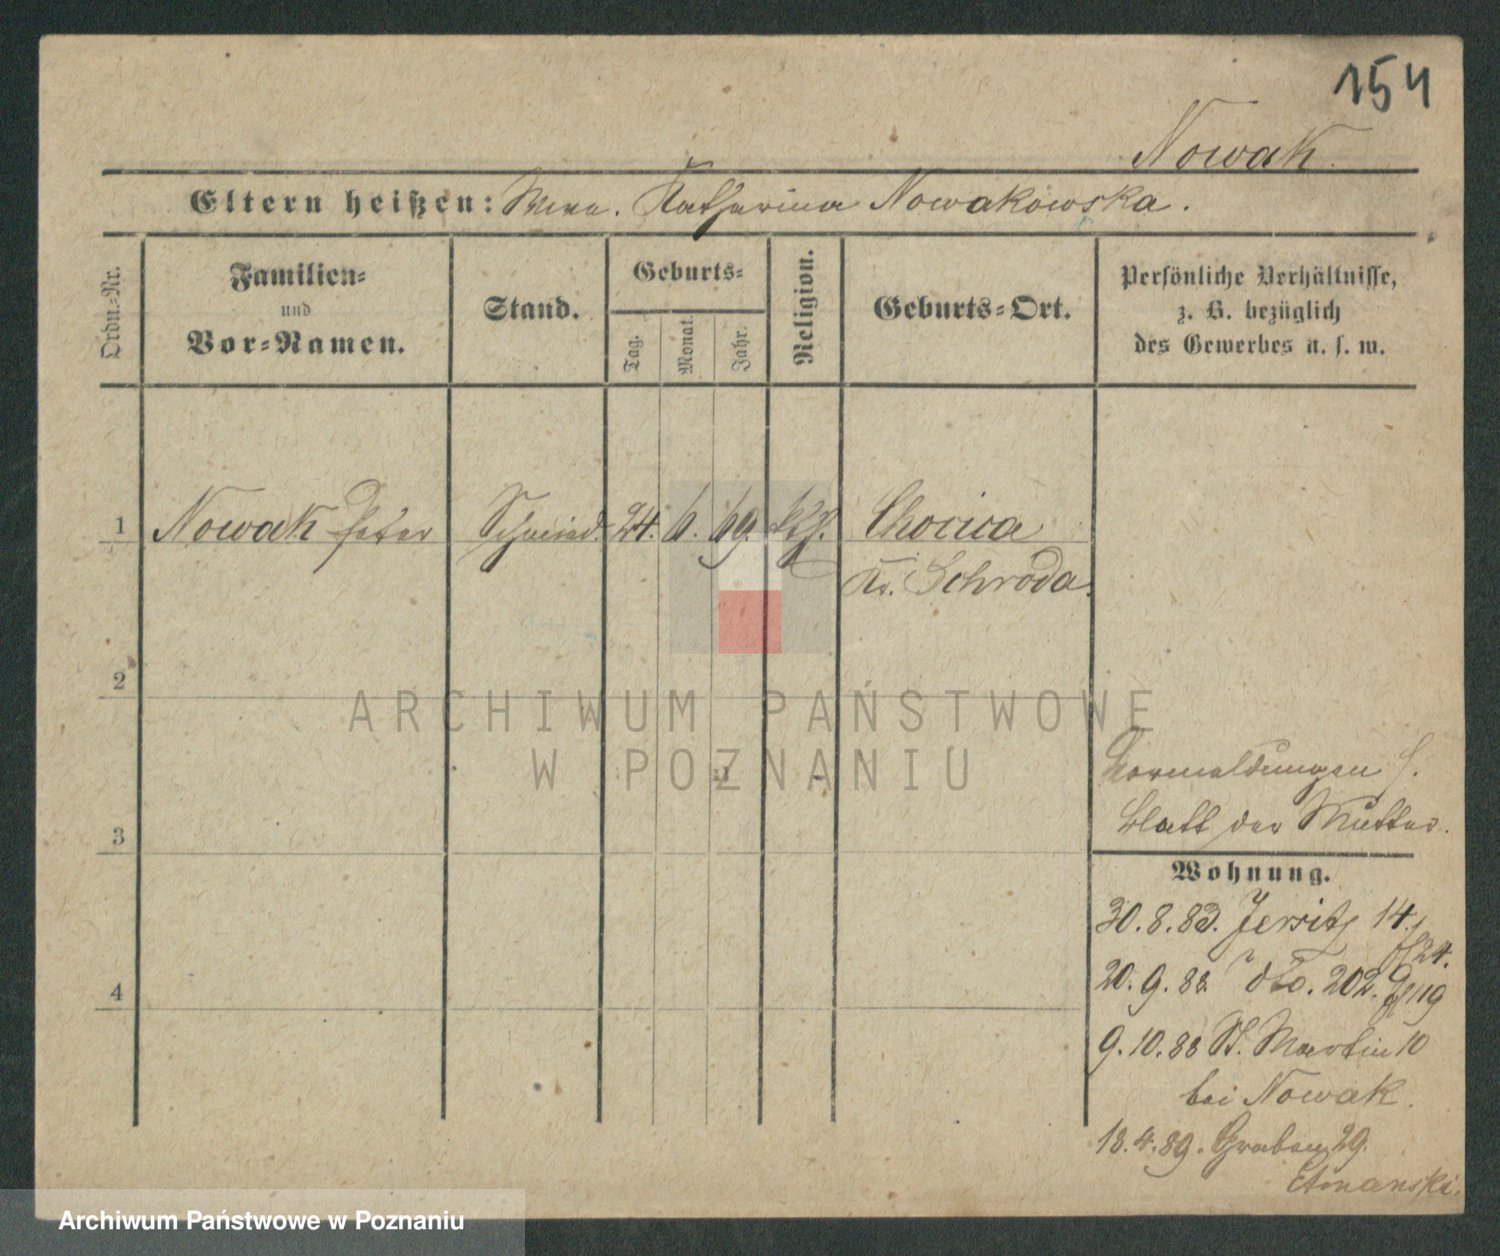 154
Nowak.
Eltern heißen: Wwe. Katharina Nowakowska.
Ordn.-Nr.
Familien-
und
Vor-Namen.
Stand.
Geburts-
Tag.
Monat.
Jahr.
Religion.
Geburts-Ort.
Persönliche Verhältnisse,
z. B. bezüglich
des Gewerbes u. s. w.
1 Nowak Peter Schmied. 24. 6. 69. kth. Chocica
Kr. Schroda.
2
ARCHIWUM PAŃSTWOWE
W POZNANIU
Vormeldungen s.
Blatt der Mutter.
3
Wohnung.
30.8.88. Jersitz 14.
24.
20.9.88. dto. 202. 119
4
9.10.88 St. Martin 10
bei Nowak.
18.4.89. Graben 29.
Etmanski.
Archiwum Państwowe w Poznaniu